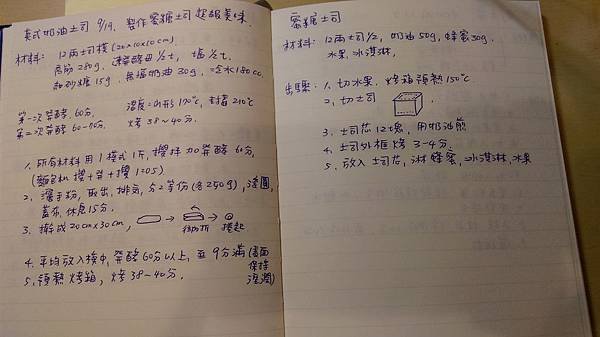 英式奶油土司 9/19. 製作蜜糖土司超級美味.
材料: 12兩土司模 (20×10×10cm)
高筋 280g, 速發酵母 1/2t, 塩 1/2t.
細砂糖 15g, 無塩奶油 30g, 冰水 180cc.
第一次發酵 60分, 溫度=山形 190℃, 帶蓋 210℃
第二次發酵 60-70分, 烤 38~40分.
1. 所有材料用1模式1斤, 攪拌加發酵 60分,
(麵包机 攪+昔+攪 1:05)
2. 灑手粉, 取出, 排氣, 分2等份(各250g), 滾圓,
蓋布, 休息15分.
3. 擀成 20cm×30cm, → → 捲起
4. 平均放入模中, 發酵60分以上, 至9分滿 (表面
保持
溼潤)
5. 預熱烤箱, 烤 38~40分.
蜜糖土司
材料: 12兩土司 1/2, 奶油 50g, 蜂蜜 30g.
水果, 冰淇淋,
步驟: 1. 切水果, 烤箱預熱150℃
2. 切土司
3. 土司芯 12塊, 用奶油煎
4. 土司外框烤 3-4分.
5. 放入土司芯, 淋蜂蜜, 冰淇淋, 水果